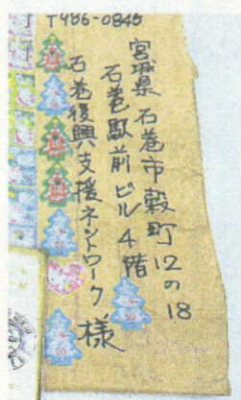 〒986-0845
宮城県石巻市穀町12の18
石巻駅前ビル4階
石巻復興支援ネットワーク様